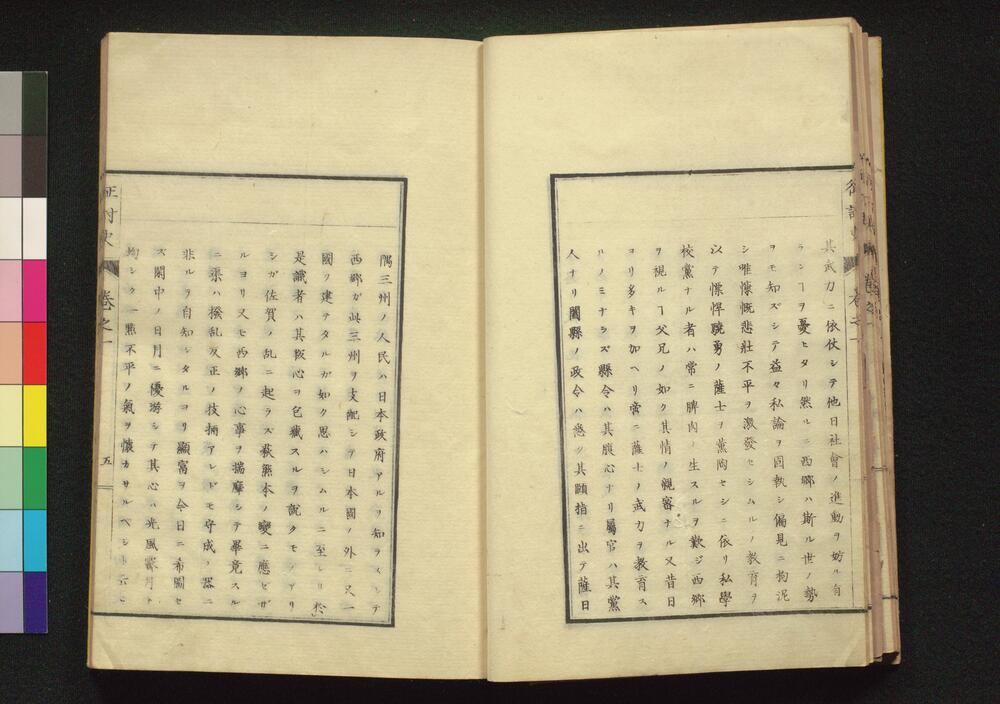 其武力ニ依仗シテ他日社會ノ進動ヲ妨ル有
ランヿヲ憂ヒタリ然ルニ西郷ハ斯ル世ノ勢
ヲモ知ズシテ益々私論ヲ固執シ偏見ニ拘泥
シ唯慷慨悲壮不平ヲ激發セシムルノ教育ヲ
以テ慓悍驍勇ノ薩士ヲ薫陶セシニ依リ私學
校黨ナル者ハ常ニ脾肉ノ生スルヲ歎ジ西郷
ヲ視ルヿ父兄ノ如ク其情ノ親密ナル又昔日
ヨリ多キヲ加ヘリ啻ニ薩士ノ武力ヲ教育ス
ルノミナラズ縣令ハ其腹心ナリ屬官ハ其黨
人ナリ闔縣ノ政令ハ悉ク其頤指ニ出テ薩日
隅三州ノ人民ハ日本政府アルヲ知ラズシテ
西郷ガ此三州ヲ支配シテ日本國ノ外ニ又一
國ヲ建テタルガ如ク思ハシムルニ至レリ於
是識者ハ其叛心ヲ包藏スルヲ説クモノアリ
シガ佐賀ノ乱ニ起ラズ萩熊本ノ變ニ應ヒザ
ルヨリ又モ西郷ノ心事ヲ揣摩シテ畢竟スル
ニ渠ハ撥乱反正ノ技倆アレドモ守成ノ器ニ
非ルヲ自知シタルヨリ顯富ヲ今日ニ希圖セ
ズ閑中ノ日月ニ優游シテ其心ハ光風霽月ト
均シク一點不平ノ氣ヲ懐カサルベシ
征討史
卷之一
五